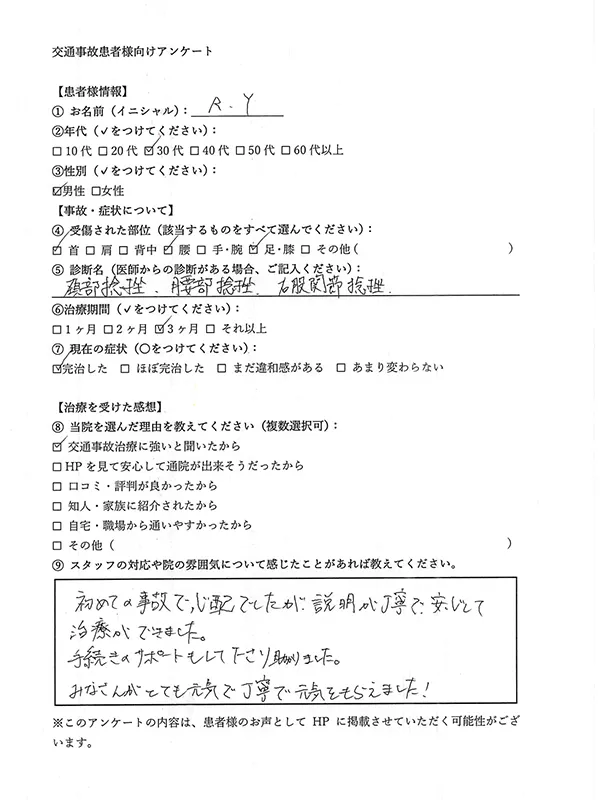 交通事故患者様向けアンケート
【患者様情報】
① お名前（イニシャル）： R.Y
②年代（✓をつけてください）：
☐10代 ☐20代 ☑30代 ☐40代 ☐50代 ☐60代以上
③性別（✓をつけてください）：
☑男性 ☐女性
【事故・症状について】
④ 受傷された部位（該当するものをすべて選んでください）：
☑ 首 ☐ 肩 ☐ 背中 ☑ 腰 ☐ 手・腕 ☑ 足・膝 ☐ その他（ ）
⑤ 診断名（医師からの診断がある場合、ご記入ください）：
頚部捻挫、腰部捻挫、右股関節捻挫
⑥治療期間（✓をつけてください）：
☐1ヶ月 ☐2ヶ月 ☑3ヶ月 ☐ それ以上
⑦ 現在の症状（〇をつけてください）：
☑完治した ☐ ほぼ完治した ☐ まだ違和感がある ☐ あまり変わらない
【治療を受けた感想】
⑧ 当院を選んだ理由を教えてください（複数選択可）：
☑ 交通事故治療に強いと聞いたから
☐HPを見て安心して通院が出来そうだったから
☐ 口コミ・評判が良かったから
☐ 知人・家族に紹介されたから
☐ 自宅・職場から通いやすかったから
☐ その他（ ）
⑨ スタッフの対応や院の雰囲気について感じたことがあれば教えてください。
初めての事故で心配でしたが、説明が丁寧で、安心して
治療ができました。
手続きのサポートもして下さり助かりました。
みなさんがとても元気で丁寧で元気をもらえました！
※このアンケートの内容は、患者様のお声として HP に掲載させていただく可能性がござ
います。